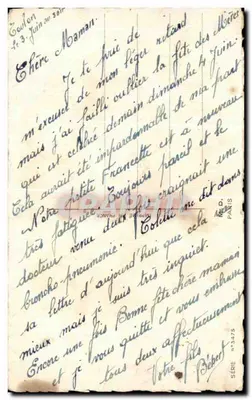 Toulon
le 3 Juin au soir
Chère Maman.
Je te prie de
m'excuser de mon léger retard
mais j'ai failli oublier la fête des Mères
qui est célébré demain dimanche 4 Juin
Cela aurait été impardonnable de ma part
Notre petite Francette est à nouveau
très fatiguée toujours pareil et le
docteur venu deux fois craignait une
broncho-pneumonie. Colette me dit dans
sa lettre d'aujourd'hui que cela va
mieux mais je suis très inquiet.
Encore une fois Bonne fête chère maman
et je vous quitte et vous embrasse
tous deux affectueusement
Votre fils
Bébert
PARIS
SÉRIE N° 3473